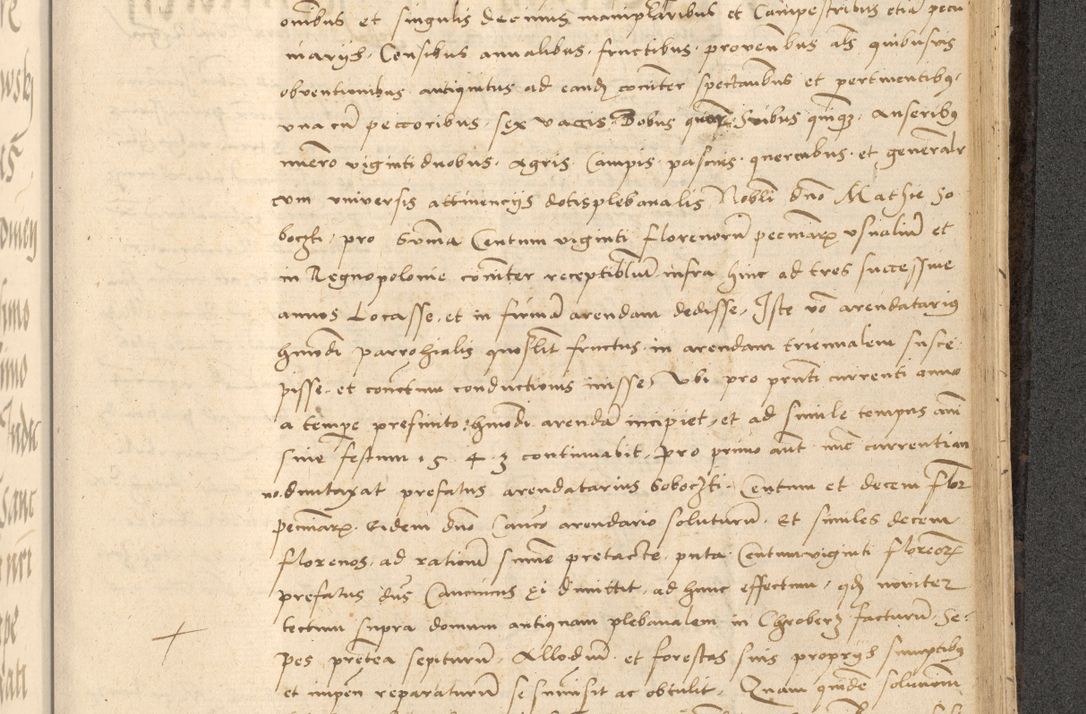 omnibus et singulis decimis manipularibus et Campestribus etiam pecu
niarijs, Censibus annalibus, fructibus, proventibus als quibusvis
obventionibus antiquitus ad eandem comiter spectantibus et pertinentibus,
una cum peccoribus, sex vaccis, Bobus Suibus quinque, Anseribus
numero viginti duobus, Agris, Campis, pascuis, quercubus, et generalr
cum universis attinencijs dotis plebanalis, Nobli dno Mathie So
boczki, pro Summa Centum viginti florenorum pecuniarum usualium et
in Regno polonie comiter receptibilium infra hinc ad tres successive
annos Locasse, et in firmam arendam dedisse, Iste vo arendatarius
hmodi parrohialis quoslit fructus in arendam triennalem susce
pisse, et conductionis inisse, Ubi pro pnti currenti anno
a tempe prefinito hmodi arenda incipiet, et ad simile tempus anni
sive festum 1 5 4 3 continuabit, pro primo aut currenti an
no dumtaxat prefatus arendatarius Soboczki Centum et decem flor
pecuniarum Eidem dno Canco arendario soluturum, Et similes decem
florenos, ad rationem summe pretacte, puta Centum viginti florenorum
prefatus dns Canonicus ei dimittit, ad hunc effectum, qd noviter
tectum supra domum antiquam plebanalem in Chroberz facturum, Se
pes preterea sepiturum, Allodium et forestas suis proprijs sumptibus
et impen reparaturum se submisit ac obtulit, Quam quidem solutionem